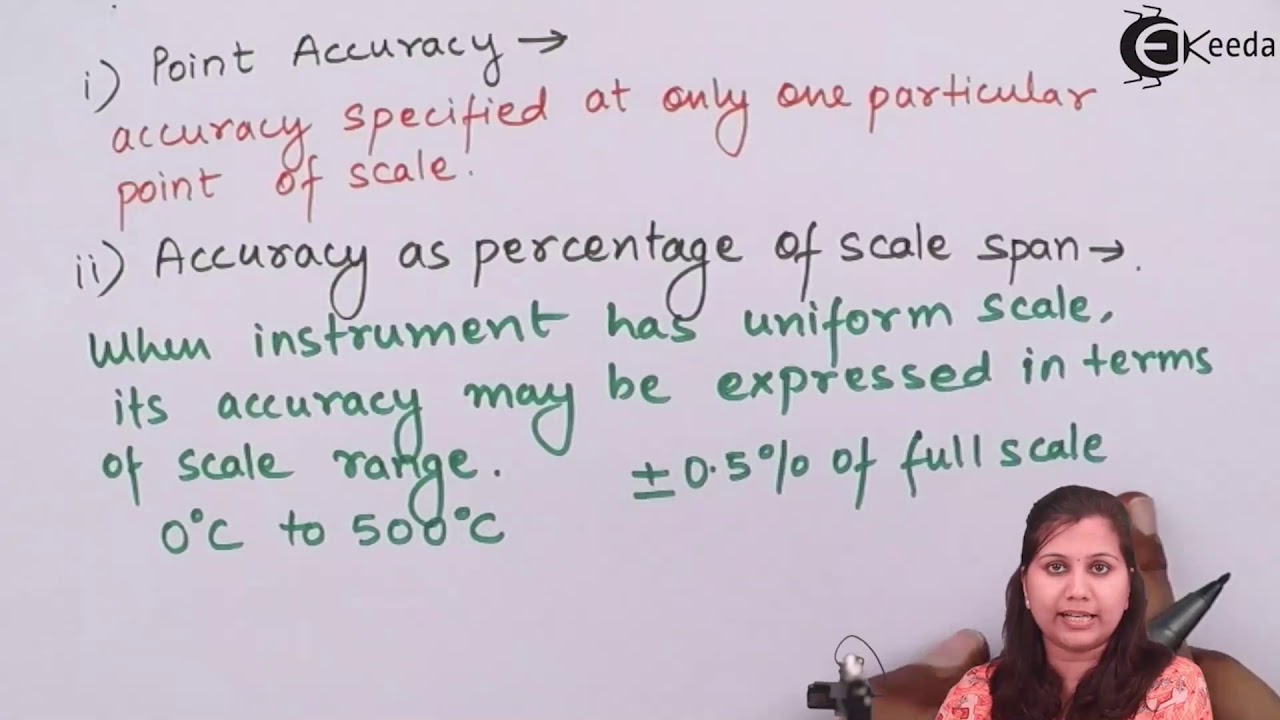 EKeeda
i) Point Accuracy →
accuracy specified at only one particular
point of scale.
ii) Accuracy as percentage of scale span →.
When instrument has uniform scale,
its accuracy may be expressed in terms
of scale range. ±0.5% of full scale
0°C to 500°C